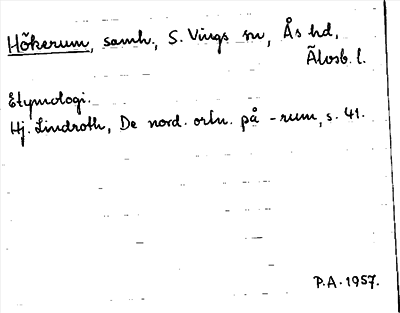 Hökerum, samh., S. Vings sn, Ås hd,
Älvsb. l.
Etymologi.
Hj. Lindroth, De nord. ortn. på -rum, s. 41.
P.A. 1957.